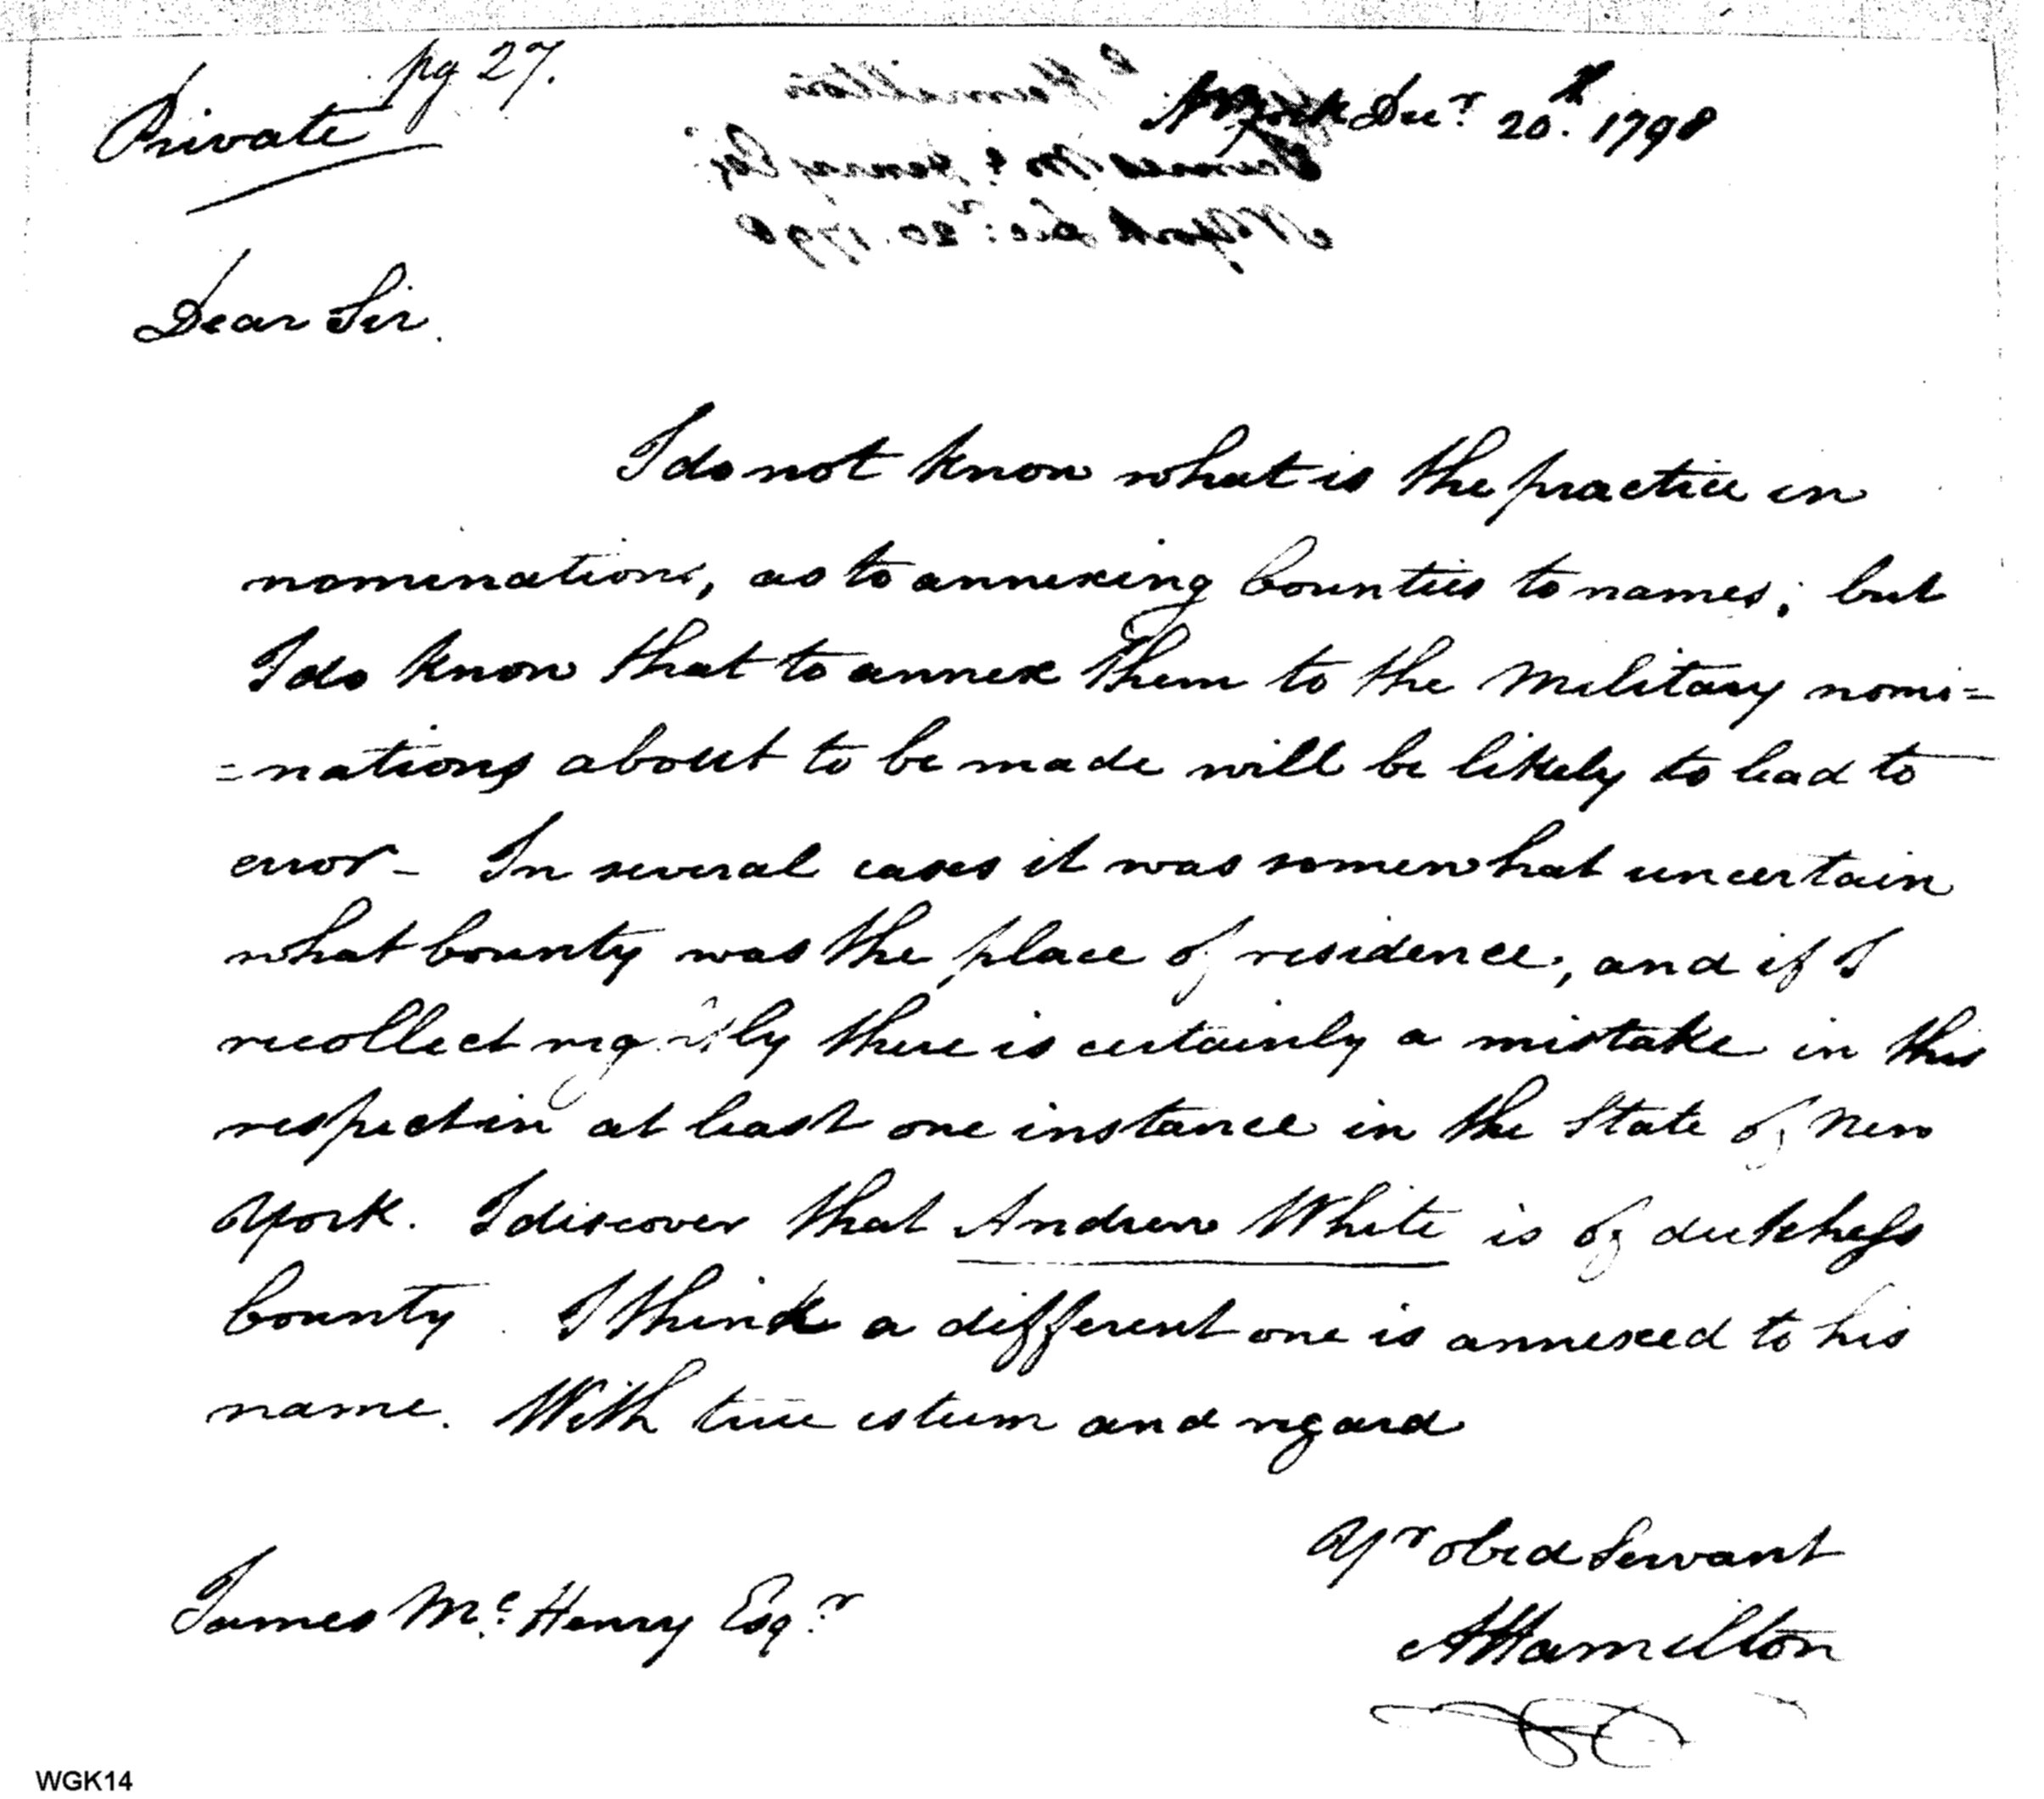 pg 27.
Private
N York Decr. 20th. 1798
Hamilton
James Mc Henry Esq
N York Dec: 20. 1798
Dear Sir.
I do not know what is the practice in
nominations, as to annexing Counties to names; but
I do know that to annex them to the Military nomi=
=nations about to be made will be likely to lead to
error - In several cases it was somewhat uncertain
what County was the place of residence, and if I
recollect rightly there is certainly a mistake in this
respect in at least one instance in the State of New
York. I discover that Andrew White is of dutchess
County. I think a different one is annexed to his
name. With true esteem and regard
Yr obed Servant
AHamilton
James Mc. Henry Esqr.
WGK14